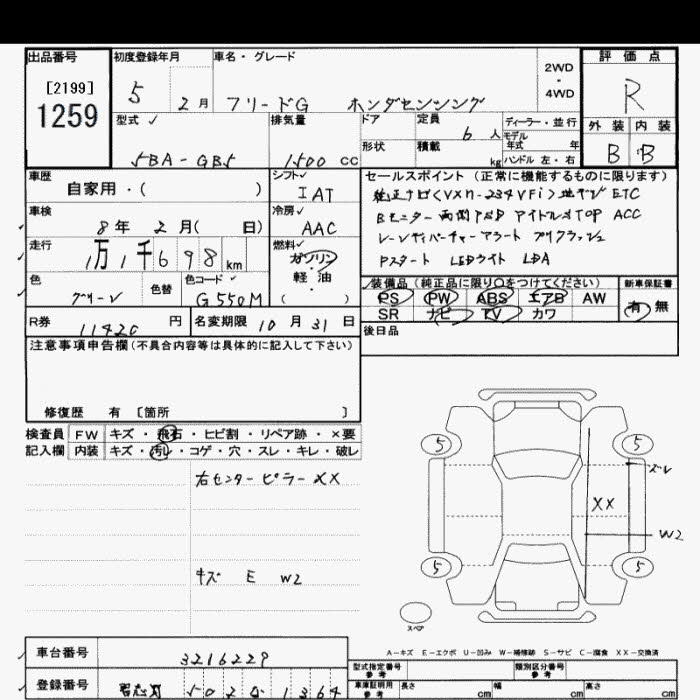 出品番号 初度登録年月 車名・グレード 2WD・4WD 評価点
[2199] 1259
5 2月 フリードG ホンダセンシング R
型式 排気量 ドア 定員 6人 ディーラー・並行 外装 内装
5BA-GB5 1500 cc 形状 積載 kg モデル年式 年 ハンドル 左・右 B B
車歴 シフト セールスポイント (正常に機能するものに限ります)
自家用・( ) IAT
純正ナビ(VXM-234VFi)地デジ ETC
車検 冷房
8年 2月( 日) AAC
Bモニター 両側PSD アイドルSTOP ACC
走行 燃料
1万1千698km ガソリン
軽・油
( )
レーンディパーチャーアラート プリクラッシュ
Pスタート LEDライト LDA
色 色替 色コード
グリーン G550M
装備品 (純正品に限り○をつけてください) 新車保証書
PS PW ABS エアB AW 有 無
SR ナビ TV カワ
R券 11420円 名変期限 10月31日 後日品
注意事項申告欄(不具合内容等は具体的に記入して下さい)
修復歴 有 〔箇所 〕
検査員 FW キズ・飛石・ヒビ割・リペア跡・×要
記入欄 内装 キズ・汚レ・コゲ・穴・スレ・キレ・破レ
右センターピラーXX
キズ E W2
5 5
ズレ
XX
W2
5 5
スペア
A-キズ E-エクボ U-凹み W-補修跡 S-サビ C-腐食 XX-交換済
車台番号 3216229
型式指定番号 参考 類別区分番号 参考
登録番号 習志野 502 1364
車庫証明用 参考 長さ cm 幅 cm 高さ cm